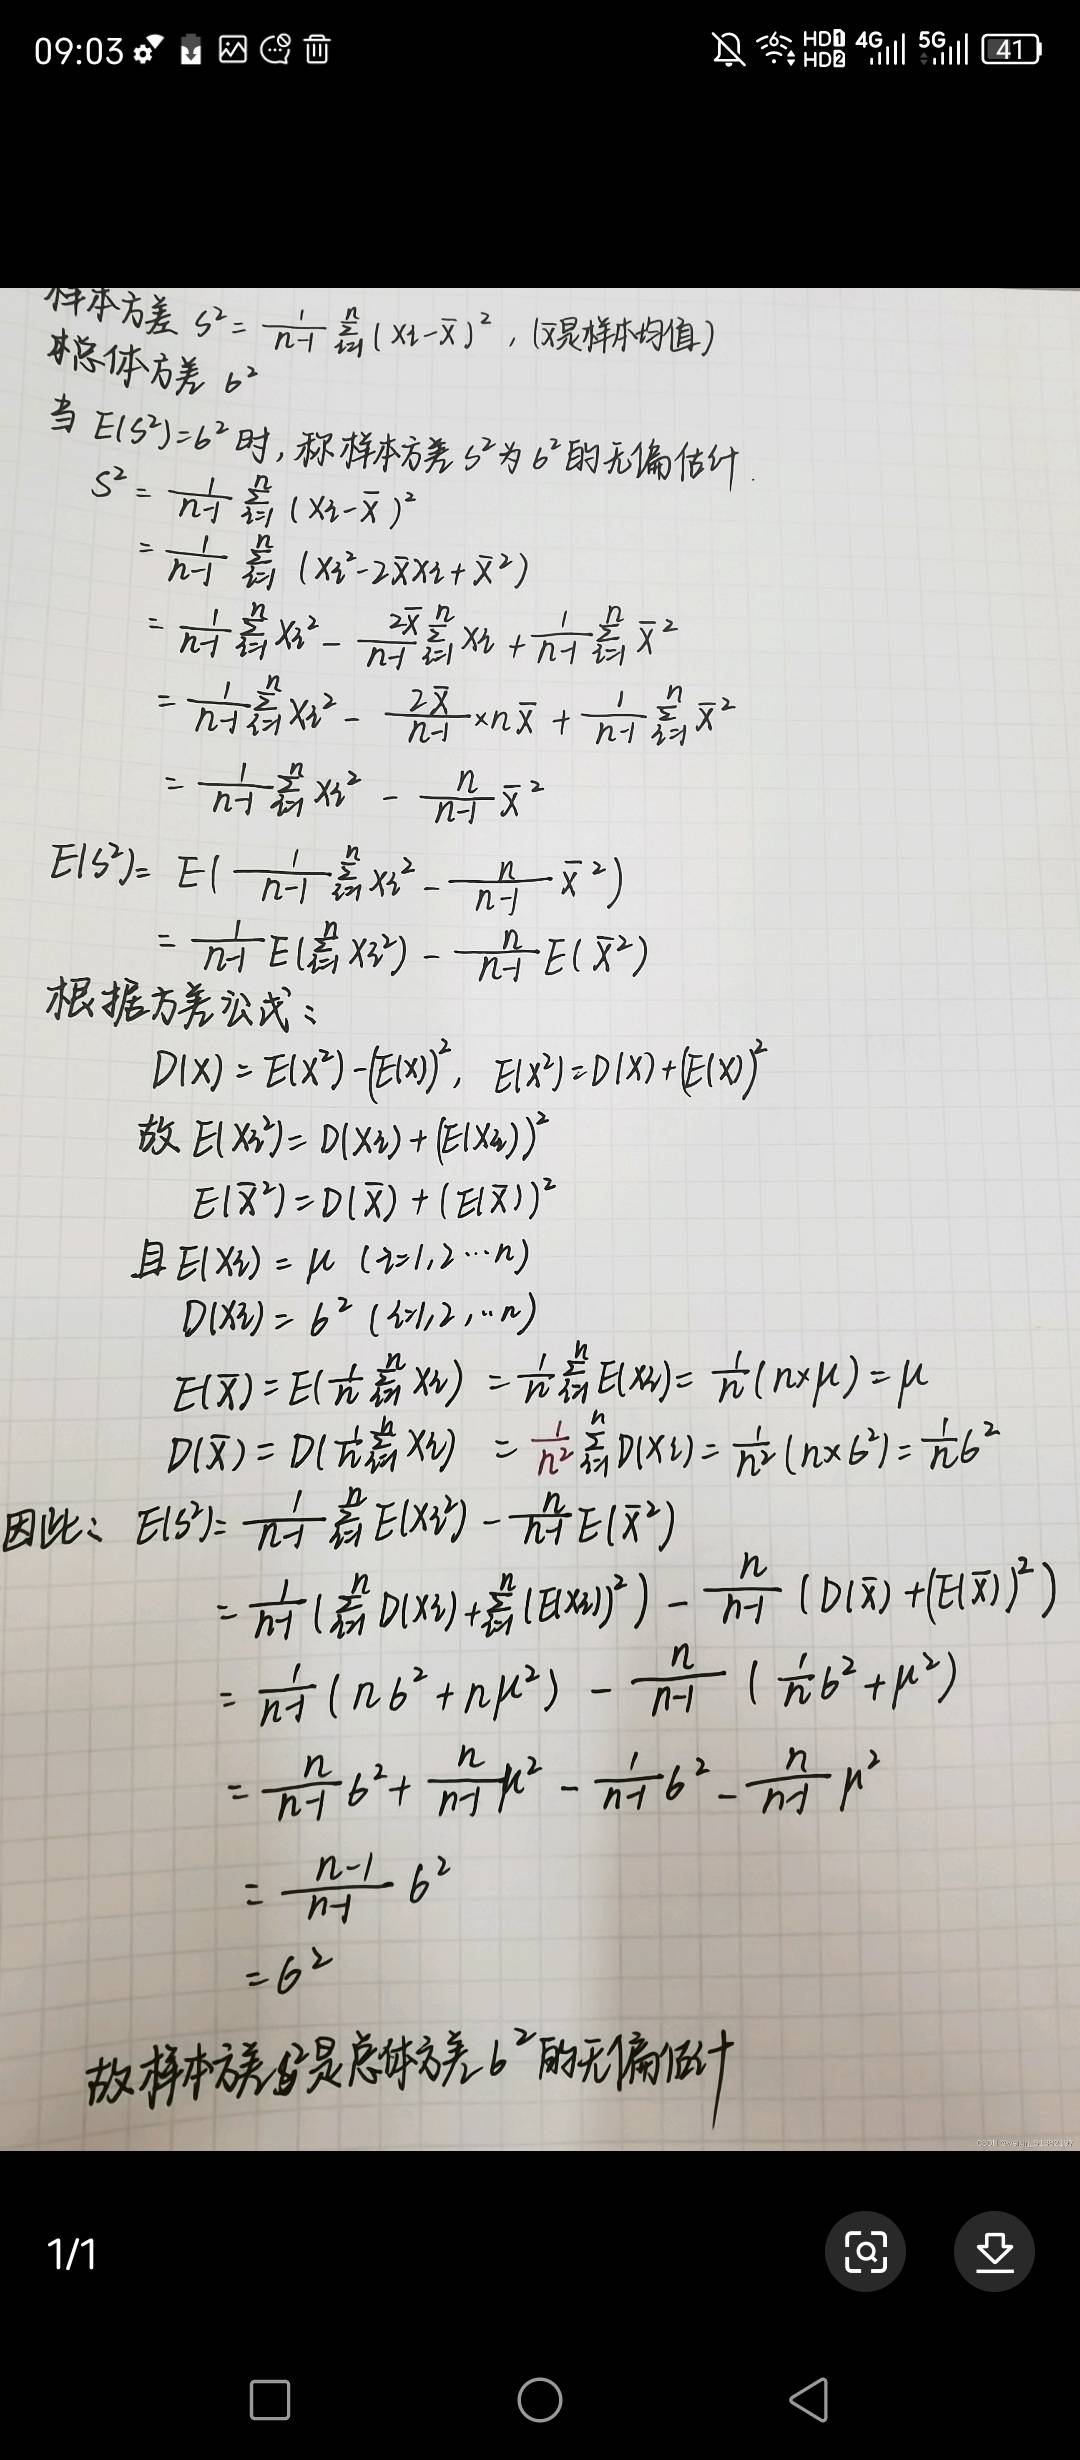 09:03 HD1 HD2 4G 5G 41
样本方差 S² = 1/(n-1) Σ_{i=1}^{n} (Xi-X̄)², (X̄是样本均值)
总体方差 6²
当 E(S²)=6² 时, 称样本方差 S² 为 6² 的无偏估计.
S² = 1/(n-1) Σ_{i=1}^{n} (Xi-X̄)²
= 1/(n-1) Σ_{i=1}^{n} (Xi²-2X̄Xi+X̄²)
= 1/(n-1) Σ_{i=1}^{n} Xi² - 2X̄/(n-1) Σ_{i=1}^{n} Xi + 1/(n-1) Σ_{i=1}^{n} X̄²
= 1/(n-1) Σ_{i=1}^{n} Xi² - 2X̄/(n-1) ×nX̄ + 1/(n-1) Σ_{i=1}^{n} X̄²
= 1/(n-1) Σ_{i=1}^{n} Xi² - n/(n-1) X̄²
E(S²)= E( 1/(n-1) Σ_{i=1}^{n} Xi² - n/(n-1) X̄²)
= 1/(n-1) E(Σ_{i=1}^{n} Xi²) - n/(n-1) E(X̄²)
根据方差公式:
D(X) = E(X²)-(E(X))², E(X²)=D(X)+(E(X))²
故 E(Xi²)= D(Xi)+(E(Xi))²
E(X̄²)=D(X̄)+(E(X̄))²
且 E(Xi) = μ (i=1,2…n)
D(Xi) = 6² (i=1,2,…n)
E(X̄) = E(1/n Σ_{i=1}^{n} Xi) = 1/n Σ_{i=1}^{n} E(Xi) = 1/n (n×μ) = μ
D(X̄) = D(1/n Σ_{i=1}^{n} Xi) = 1/n² Σ_{i=1}^{n} D(Xi) = 1/n² (n×6²) = 1/n 6²
因此: E(S²)= 1/(n-1) Σ_{i=1}^{n} E(Xi²) - n/(n-1) E(X̄²)
= 1/(n-1) (Σ_{i=1}^{n} D(Xi)+Σ_{i=1}^{n} (E(Xi))²) - n/(n-1) (D(X̄)+(E(X̄))²)
= 1/(n-1) (n6²+nμ²) - n/(n-1) (1/n 6²+μ²)
= n/(n-1) 6² + n/(n-1) μ² - 1/(n-1) 6² - n/(n-1) μ²
= (n-1)/(n-1) 6²
= 6²
故样本方差 S² 是总体方差 6² 的无偏估计
1/1